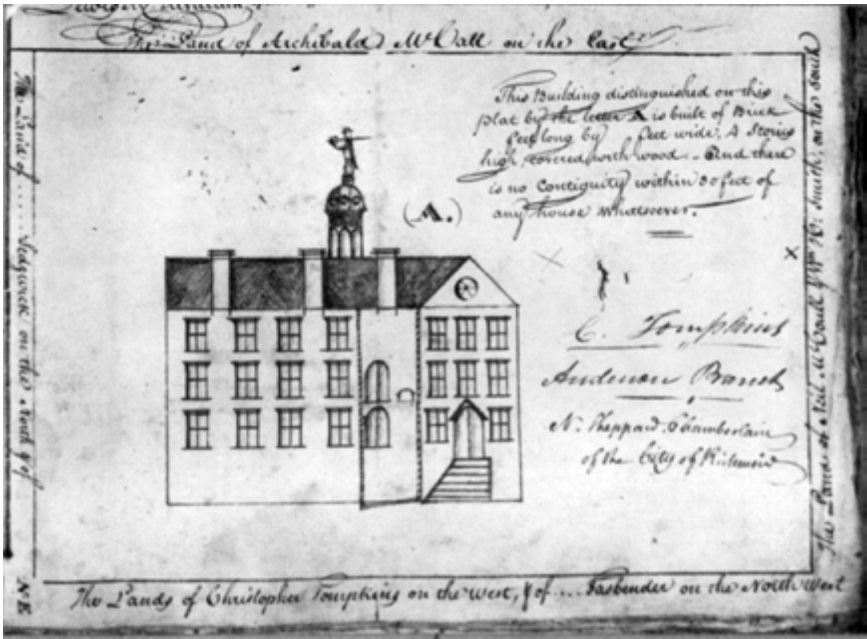 The Land of Archibald McCall on the East
This Building distinguished on this
plat by the letter A is built of Brick
feet long by feet wide, 4 Stories
high, covered with wood. And there
is no Contiguity within 30 feet of
any house whatsoever.
(A.)
C. Tompkins
Anderson
N. Sheppard, Chamberlain
of the City of Richmond
The Lands of Neil McCaull & Wm H. Smith, on the South
The Lands of Christopher Tompkins on the West, & of .... Fasbender on the North West
The Land of ..... Sedgwick on the North & of
N E